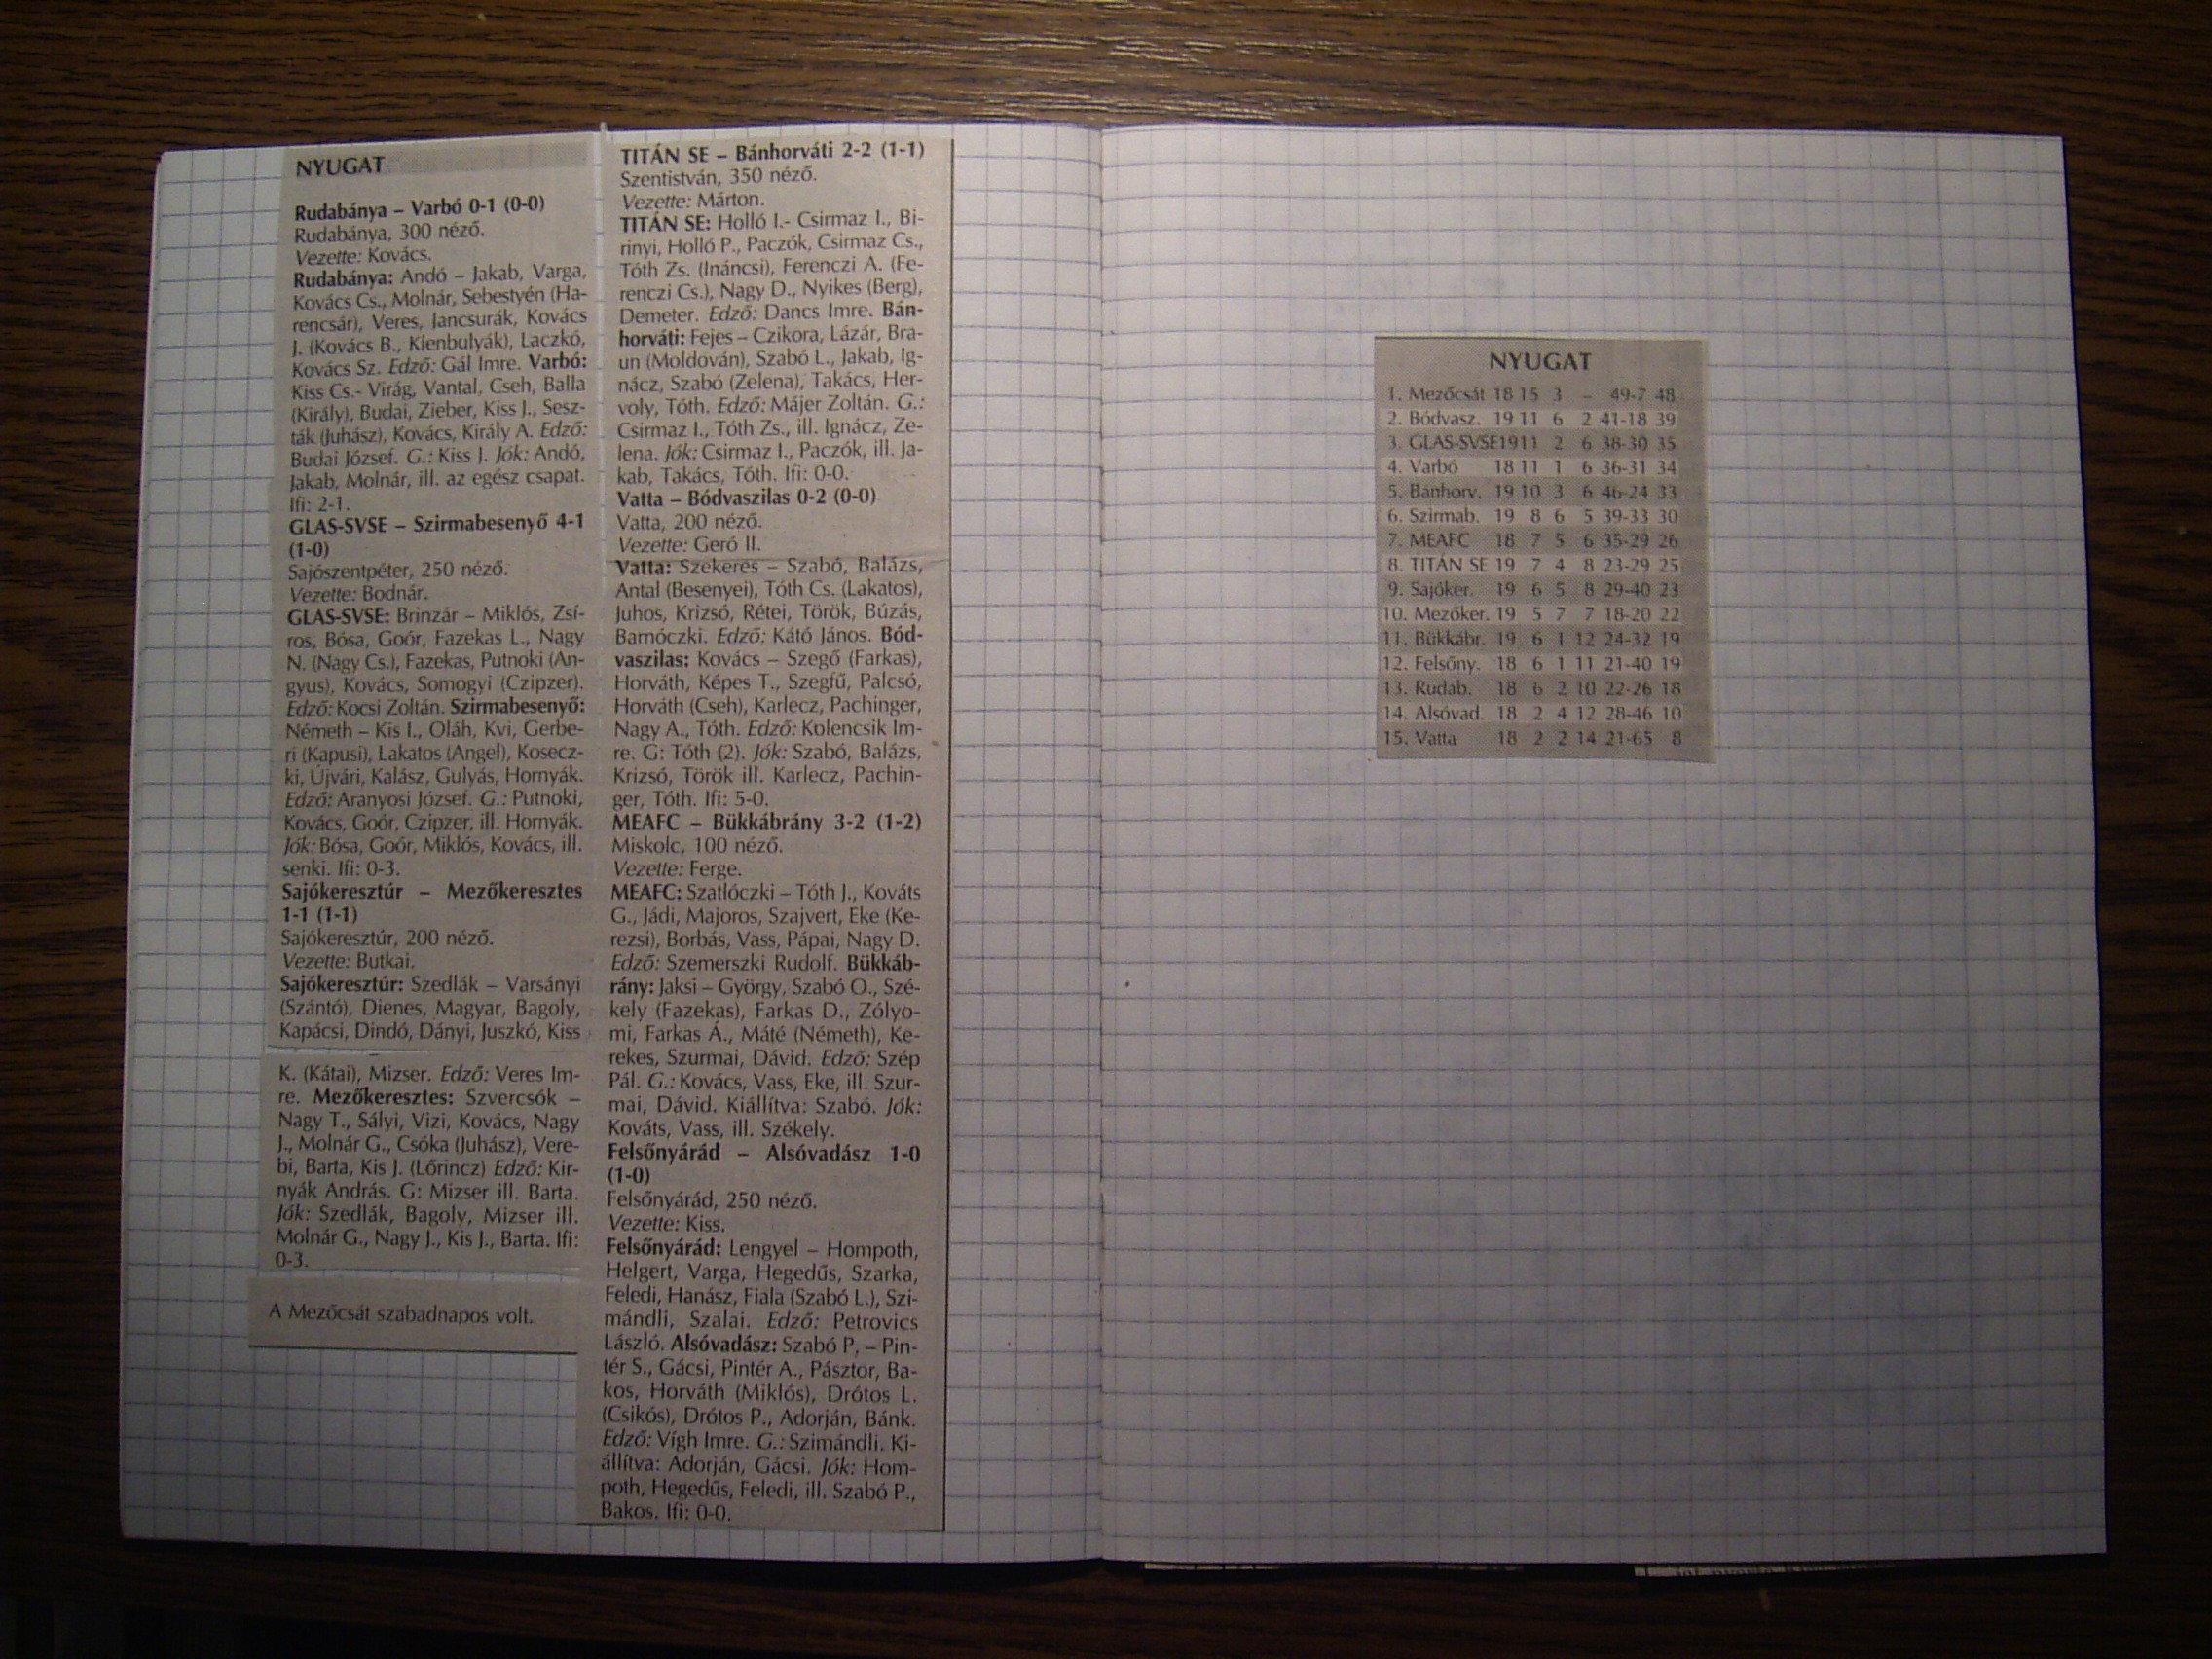 NYUGAT
Rudabánya – Varbó 0-1 (0-0)
Rudabánya, 300 néző.
Vezette: Kovács.
Rudabánya: Andó – Jakab, Varga,
Kovács Cs., Molnár, Sebestyén (Ha-
rencsár), Veres, Jancsurák, Kovács
J. (Kovács B., Klenbulyák), Laczkó,
Kovács Sz. Edző: Gál Imre. Varbó:
Kiss Cs.- Virág, Vantal, Cseh, Balla
(Király), Budai, Zieber, Kiss J., Sesz-
ták (Juhász), Kovács, Király A. Edző:
Budai József. G.: Kiss J. Jók: Andó,
Jakab, Molnár, ill. az egész csapat.
Ifi: 2-1.
GLAS-SVSE – Szirmabesenyő 4-1
(1-0)
Sajószentpéter, 250 néző.
Vezette: Bodnár.
GLAS-SVSE: Brinzár – Miklós, Zsí-
ros, Bósa, Goór, Fazekas L., Nagy
N. (Nagy Cs.), Fazekas, Putnoki (An-
gyus), Kovács, Somogyi (Czipzer).
Edző: Kocsi Zoltán. Szirmabesenyő:
Németh – Kis I., Oláh, Kvi, Gerbe-
ri (Kapusi), Lakatos (Angel), Kosecz-
ki, Újvári, Kalász, Gulyás, Hornyák.
Edző: Aranyosi József. G.: Putnoki,
Kovács, Goór, Czipzer, ill. Hornyák.
Jók: Bósa, Goór, Miklós, Kovács, ill.
senki. Ifi: 0-3.
Sajókeresztúr – Mezőkeresztes
1-1 (1-1)
Sajókeresztúr, 200 néző.
Vezette: Butkai.
Sajókeresztúr: Szedlák – Varsányi
(Szántó), Dienes, Magyar, Bagoly,
Kapácsi, Dindó, Dányi, Juszkó, Kiss
K. (Kátai), Mizser. Edző: Veres Im-
re. Mezőkeresztes: Szvercsók –
Nagy T., Sályi, Vizi, Kovács, Nagy
J., Molnár G., Csóka (Juhász), Vere-
bi, Barta, Kis J. (Lőrincz) Edző: Kir-
nyák András. G: Mizser ill. Barta.
Jók: Szedlák, Bagoly, Mizser ill.
Molnár G., Nagy J., Kis J., Barta. Ifi:
0-3.
A Mezőcsát szabadnapos volt.
TITÁN SE – Bánhorváti 2-2 (1-1)
Szentistván, 350 néző.
Vezette: Márton.
TITÁN SE: Holló I.- Csirmaz I., Bi-
rinyi, Holló P., Paczók, Csirmaz Cs.,
Tóth Zs. (Ináncsi), Ferenczi A. (Fe-
renczi Cs.), Nagy D., Nyikes (Berg),
Demeter. Edző: Dancs Imre. Bán-
horváti: Fejes – Czikora, Lázár, Bra-
un (Moldován), Szabó L., Jakab, Ig-
nácz, Szabó (Zelena), Takács, Her-
voly, Tóth. Edző: Májer Zoltán. G.:
Csirmaz I., Tóth Zs., ill. Ignácz, Ze-
lena. Jók: Csirmaz I., Paczók, ill. Ja-
kab, Takács, Tóth. Ifi: 0-0.
Vatta – Bódvaszilas 0-2 (0-0)
Vatta, 200 néző.
Vezette: Geró II.
Vatta: Szekeres – Szabó, Balázs,
Antal (Besenyei), Tóth Cs. (Lakatos),
Juhos, Krizsó, Rétei, Török, Búzás,
Barnóczki. Edző: Kátó János. Bód-
vaszilas: Kovács – Szegő (Farkas),
Horváth, Képes T., Szegfű, Palcsó,
Horváth (Cseh), Karlecz, Pachinger,
Nagy A., Tóth. Edző: Kolencsik Im-
re. G: Tóth (2). Jók: Szabó, Balázs,
Krizsó, Török ill. Karlecz, Pachin-
ger, Tóth. Ifi: 5-0.
MEAFC – Bükkábrány 3-2 (1-2)
Miskolc, 100 néző.
Vezette: Ferge.
MEAFC: Szatlóczki – Tóth J., Kováts
G., Jádi, Majoros, Szajvert, Eke (Ke-
rezsi), Borbás, Vass, Pápai, Nagy D.
Edző: Szemerszki Rudolf. Bükkáb-
rány: Jaksi – György, Szabó O., Szé-
kely (Fazekas), Farkas D., Zólyo-
mi, Farkas Á., Máté (Németh), Ke-
rekes, Szurmai, Dávid. Edző: Szép
Pál. G.: Kovács, Vass, Eke, ill. Szur-
mai, Dávid. Kiállítva: Szabó. Jók:
Kováts, Vass, ill. Székely.
Felsőnyárád – Alsóvadász 1-0
(1-0)
Felsőnyárád, 250 néző.
Vezette: Kiss.
Felsőnyárád: Lengyel – Hompoth,
Helgert, Varga, Hegedűs, Szarka,
Feledi, Hanász, Fiala (Szabó L.), Szi-
mándli, Szalai. Edző: Petrovics
László. Alsóvadász: Szabó P. – Pin-
tér S., Gácsi, Pintér A., Pásztor, Ba-
kos, Horváth (Miklós), Drótos L.
(Csikós), Drótos P., Adorján, Bánk.
Edző: Vígh Imre. G.: Szimándli. Ki-
állítva: Adorján, Gácsi. Jók: Hom-
poth, Hegedűs, Feledi, ill. Szabó P.,
Bakos. Ifi: 0-0.
NYUGAT
1. Mezőcsát 18 15 3 – 49-7 48
2. Bódvasz. 19 11 6 2 41-18 39
3. GLAS-SVSE1911 2 6 38-30 35
4. Varbó 18 11 1 6 36-31 34
5. Bánhorv. 19 10 3 6 46-24 33
6. Szirmab. 19 8 6 5 39-33 30
7. MEAFC 18 7 5 6 35-29 26
8. TITÁN SE 19 7 4 8 23-29 25
9. Sajóker. 19 6 5 8 29-40 23
10. Mezőker. 19 5 7 7 18-20 22
11. Bükkábr. 19 6 1 12 24-32 19
12. Felsőny. 18 6 1 11 21-40 19
13. Rudab. 18 6 2 10 22-26 18
14. Alsóvad. 18 2 4 12 28-46 10
15. Vatta 18 2 2 14 21-65 8